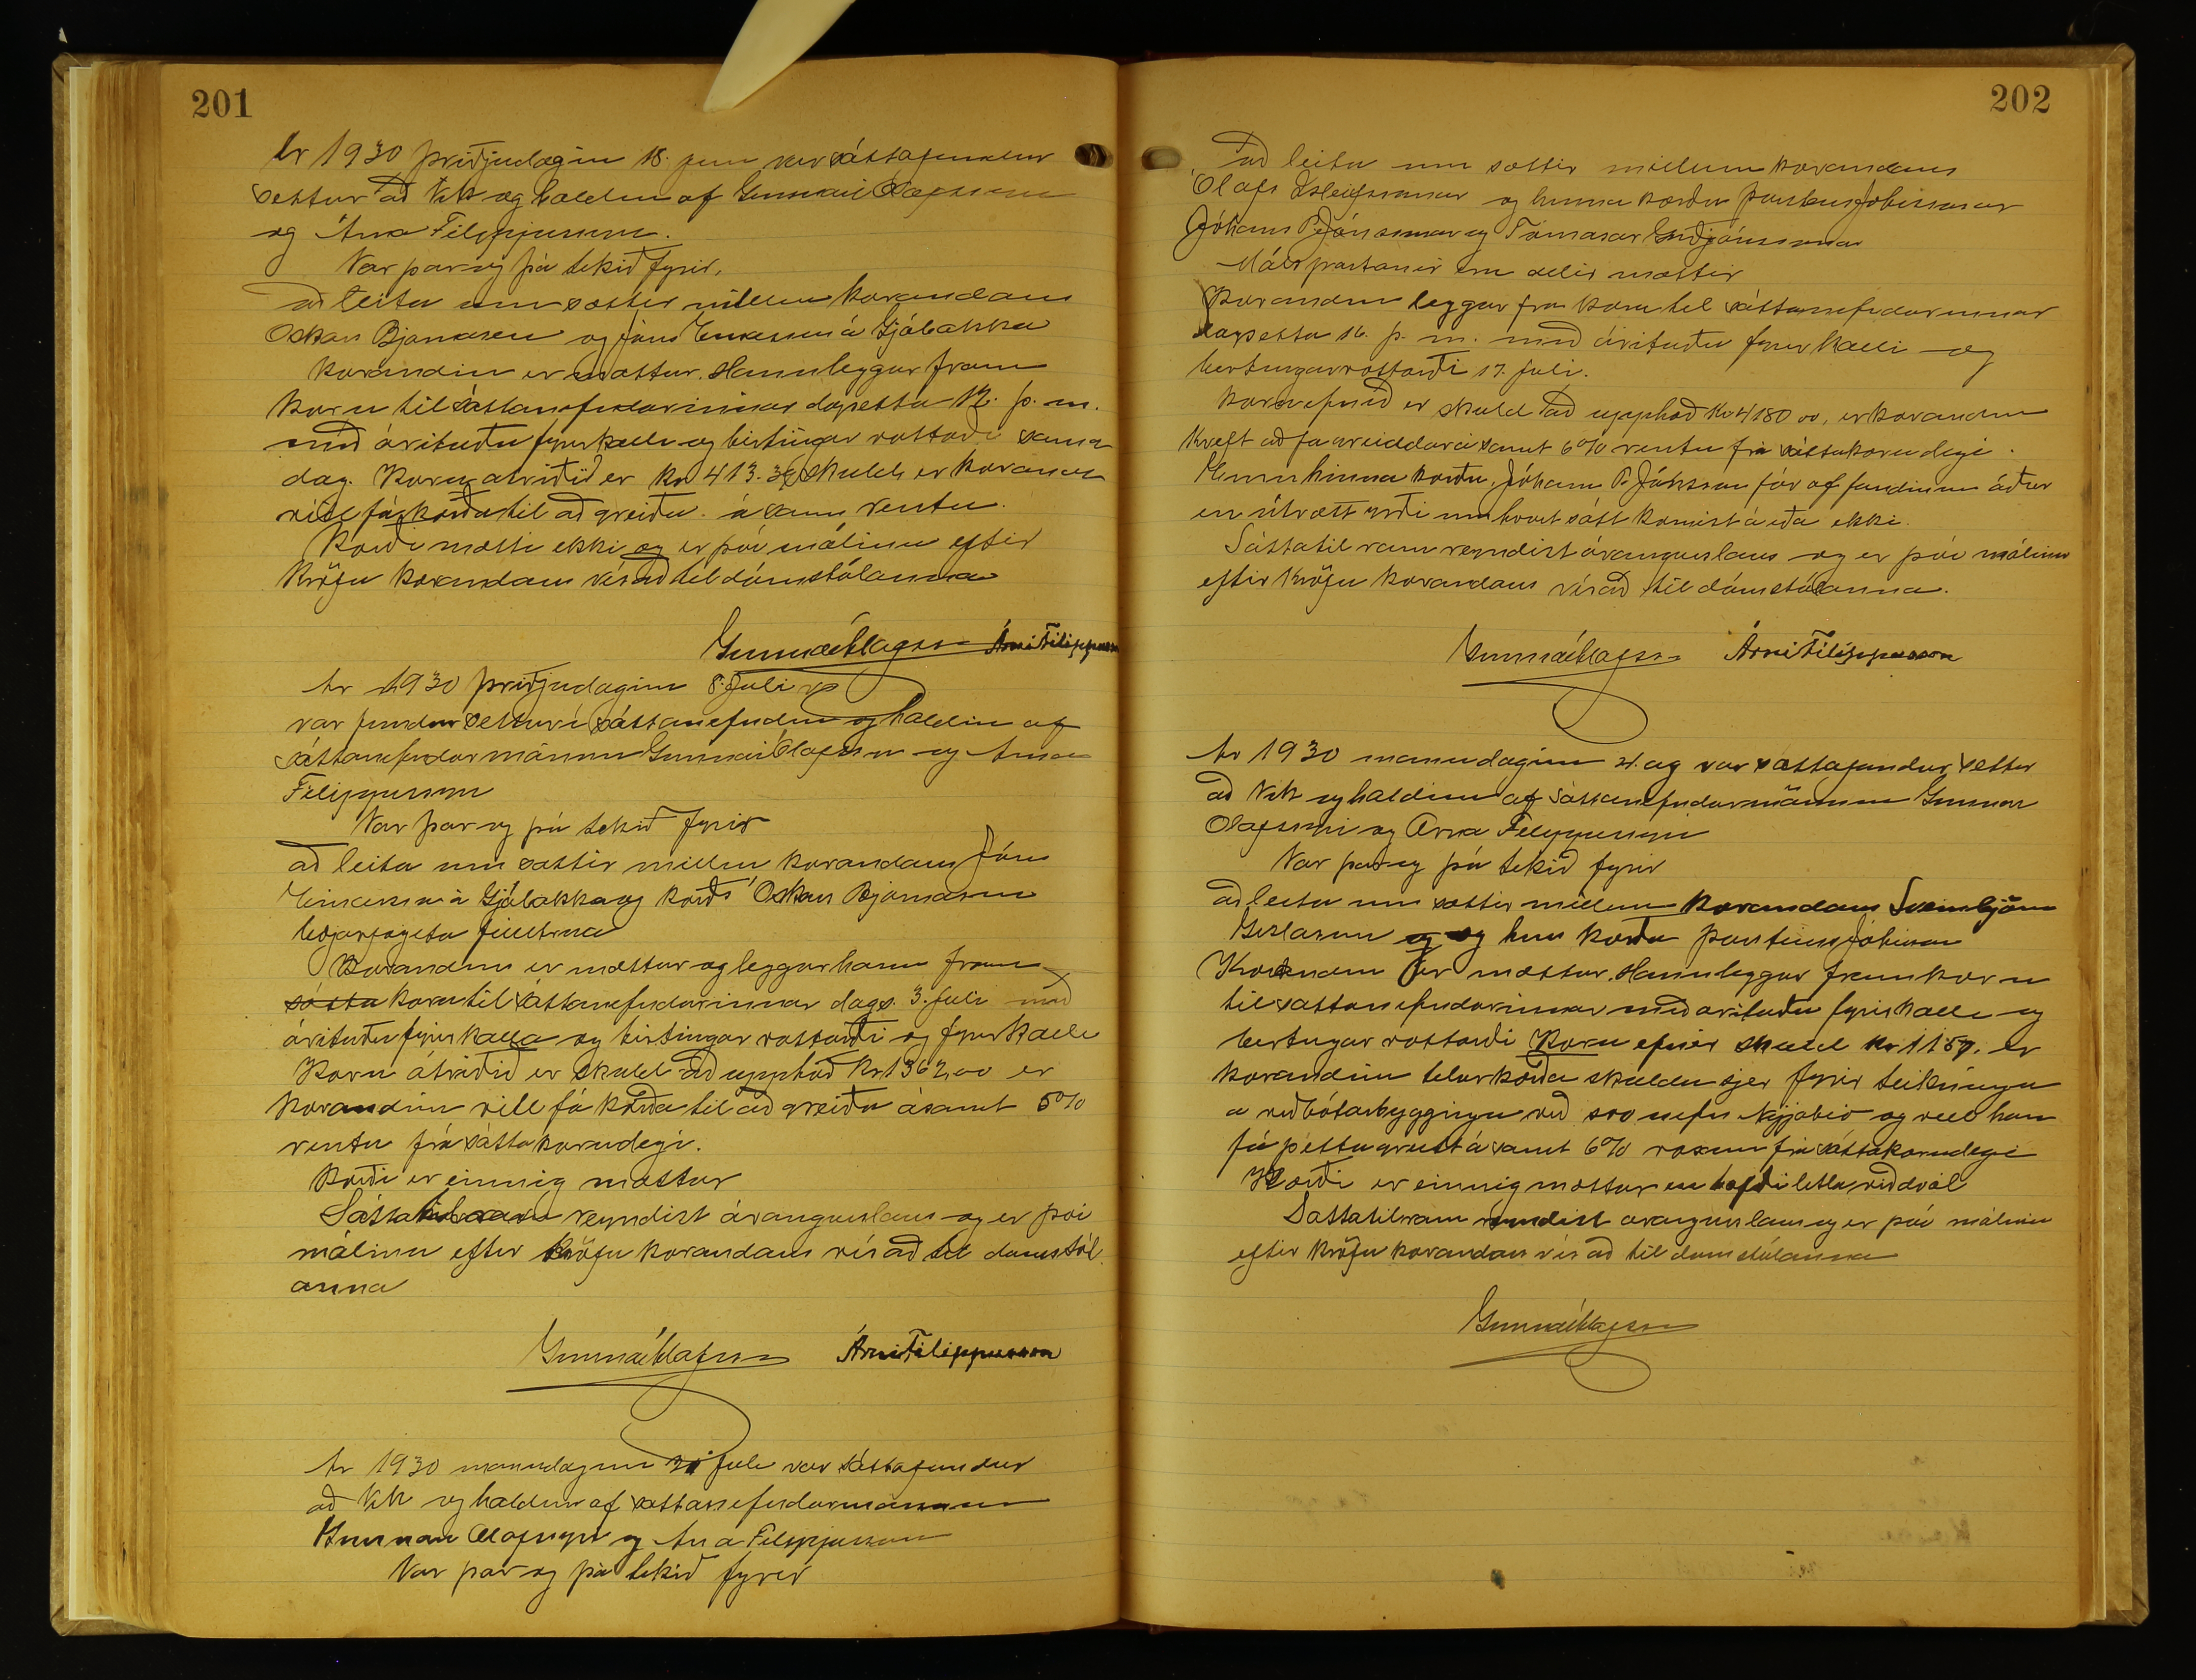 201
Ár 1930 þriðjudaginn 18. juni var sáttafundur
settur að Vík og haldin af Gunnari Olafssyni
og Árna Filippussyni.
Var þar og þá tekið fyrir,
að leita um sættir millum kærandans
Oskars Bjarnasen og Jóns Einarssonar á Gjábakka
Kærandin er mættur. Hann leggur fram
kæru til sáttanefndarinnar dagsetta 12. þ. m.
með árituðu fyrirkalli og birtingar vottorði sama
dag. Kæru atriðið er kr 413.36 skuld er kærandi
vill fá kærða til að greiða ásamt rentu.
Kærði mætti ekki og er því málinu eftir
kröfu kærandans vísað til dómstólanna
Gunnar Ólafsson Árni Filippusson
Ár 1930 þriðjudaginn 8. Juli
var fundur settur í sáttanefndinni og haldin af
sáttanefndarmönnum Gunnari Ólafssyni og Árna
Filippussyni
Var þar og þá tekið fyrir
að leita um sættir millum kærandans Jóns
Einarssonar á Gjábakka og kærðs Óskars Bjarnasen
bæjarfógeta fulltrúa
Kærandinn er mættur og leggur hann fram
sátta kæru til sáttanefndarinnar dags. 3. juli með
árituðu fyrirkalla og birtingar vottorði og fyrirkalli
Kæru átriðið er skuld að upphæð Kr 1362,00 er
kærandinn vill fá kærða til að greiða ásamt 5%
rentu frá sáttakærudegi.
Kærði er einnig mættur
Sáttatilraun reyndist árangurslaus og er því
málinu eftir kröfu kærandans vísað til domstól
anna
Gunnar Ólafsson Árni Filippusson
Ár 1930 mánudaginn 21 juli var sáttafundur
að Vík og haldinn af sáttanefndarmönnum
Gunnari Olafssyni og Árna Filippussyni
Var þar og þá tekið fyrir
202
Að leita um sættir millum kærandans
Ólafs Ísleifssonar og hinna kærðu Þorsteins Johnsonar
Jóhanns P. Jónssonar og Tómasar Guðjónssonar
Málspartanir eru allir mættir
Kærandin leggur fram kæru til sáttanefndarinnar
dagsetta 16. þ. m. með árituðu fyrirkalli og
birtingarvottorði 17. juli.
Kæruefnið er skuld að upphæð Kr 4180 00, er kærandinn
kreft að fá greiddar ásamt 6% rentu frá sáttakærudegi.
Einn hinna kærðu, Jóhann P. Jónsson fór af fundinum áður
en útrætt yrði um hvort sátt komist á eða ekki.
Sáttatilraun reyndist árangurslaus og er því málinu
eftir kröfu kærandans vísað til dómstólanna.
Gunnar Ólafsson Árni Filippusson
Ár 1930 mánudaginn 21. ág var sáttafundur settur
að Vík og haldinn af sáttanefndarmönnum Gunnari
Olafssyni og Árna Filippussyni
Var þar og þá tekið fyrir
að leita um sættir millum kærandans Sveinbjörn
Gíslasonar og og hins kærða Þorsteins Johnson
Kærandinn er mættur. Hann leggur fram kæru
til sáttanefndarinnar með árituðu fyrirkalli og
birtingar vottorði Kæru efnið skuld kr 1157. er
kærandinn telur kærða skulda sjer fyrir teikningu
a viðbótarbyggingu við svo nefnt Nýjabíó og vill hann
fá þetta greitt ásamt 6% voxum frá sáttakærudegi
Kærði er einnig mættur en hafði litla viðdvöl
Sáttatilraun reyndist arangurslaus og er því málinu
eftir kröfu kærandans vísað til domstólanna
Gunnar Ólafsson